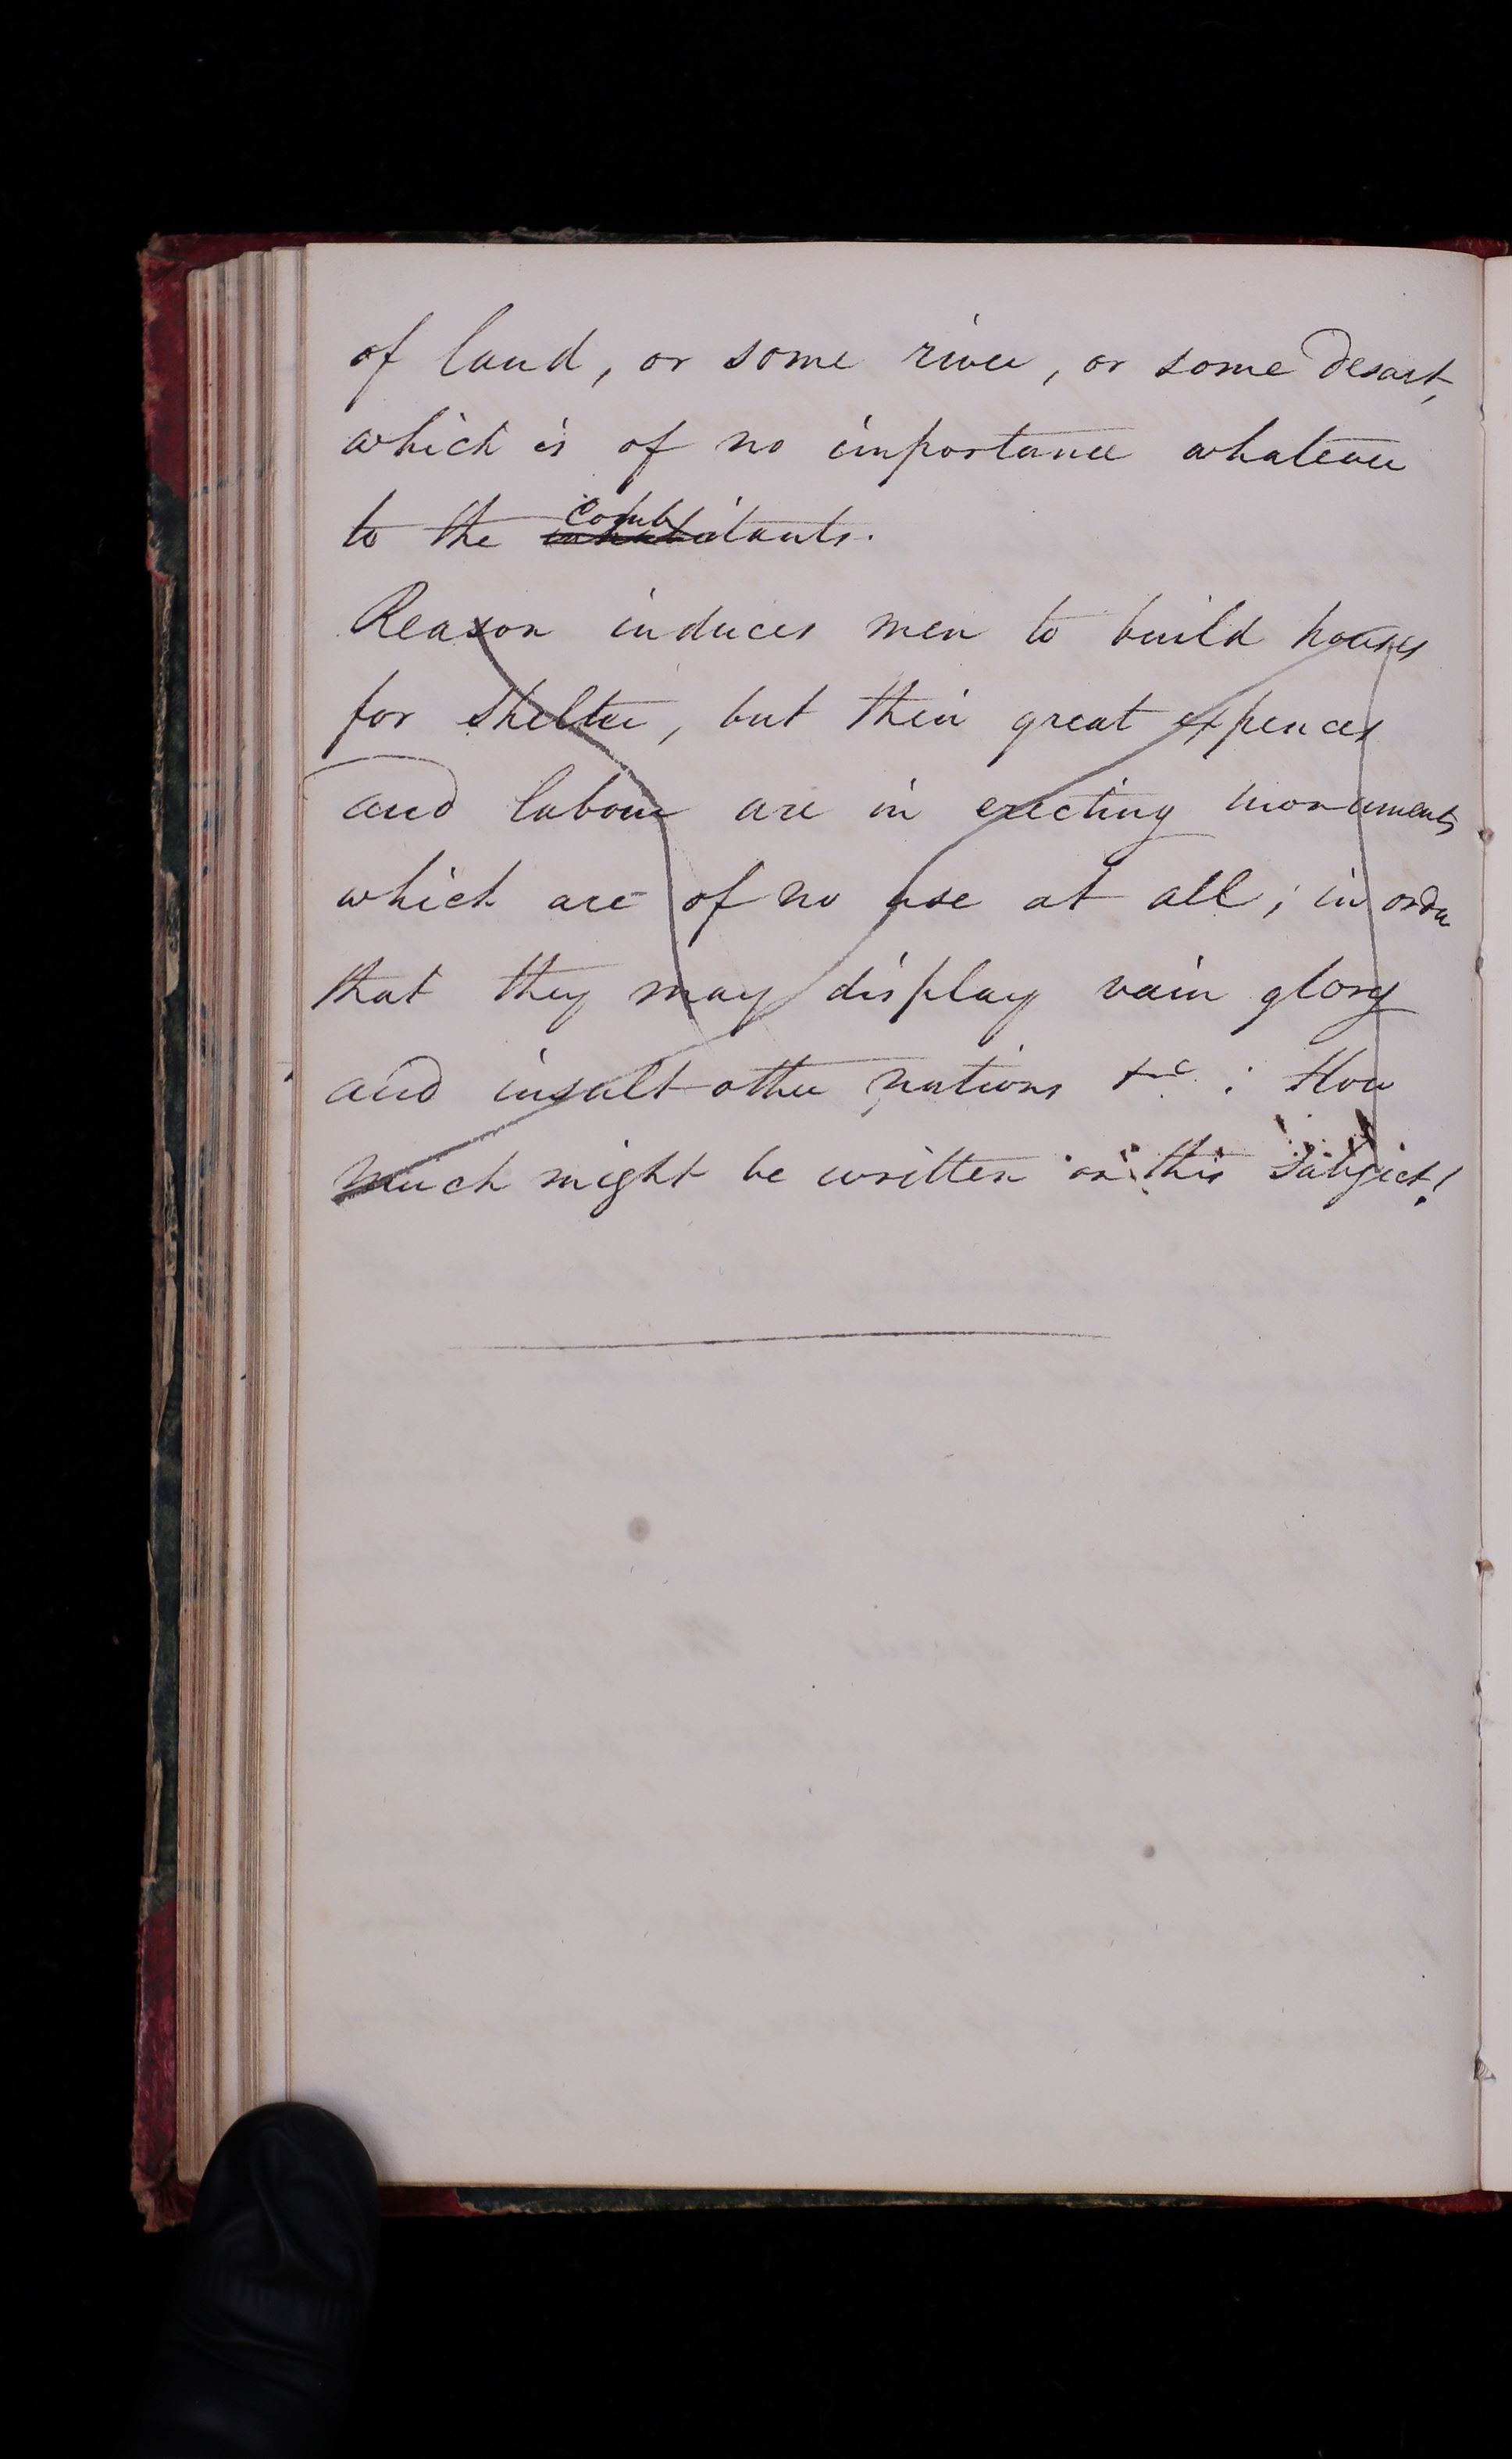 of land, or some river, or some desart,
which is of no importance whatever
to the combitants.
Reason induces men to build houses
for shelter, but their great expences
and labour are in erecting monuments
which are of no use at all; in order
that they may display vain glory
and insult other nations &c. : How
much might be written on this subject!